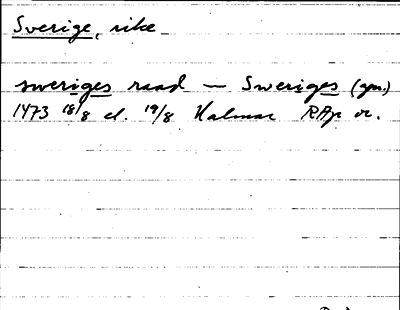 Sverige, rike
sweriges raad — Sweriges (gen.)
1473 18/8 el. 19/8 Kalmar RAp or.